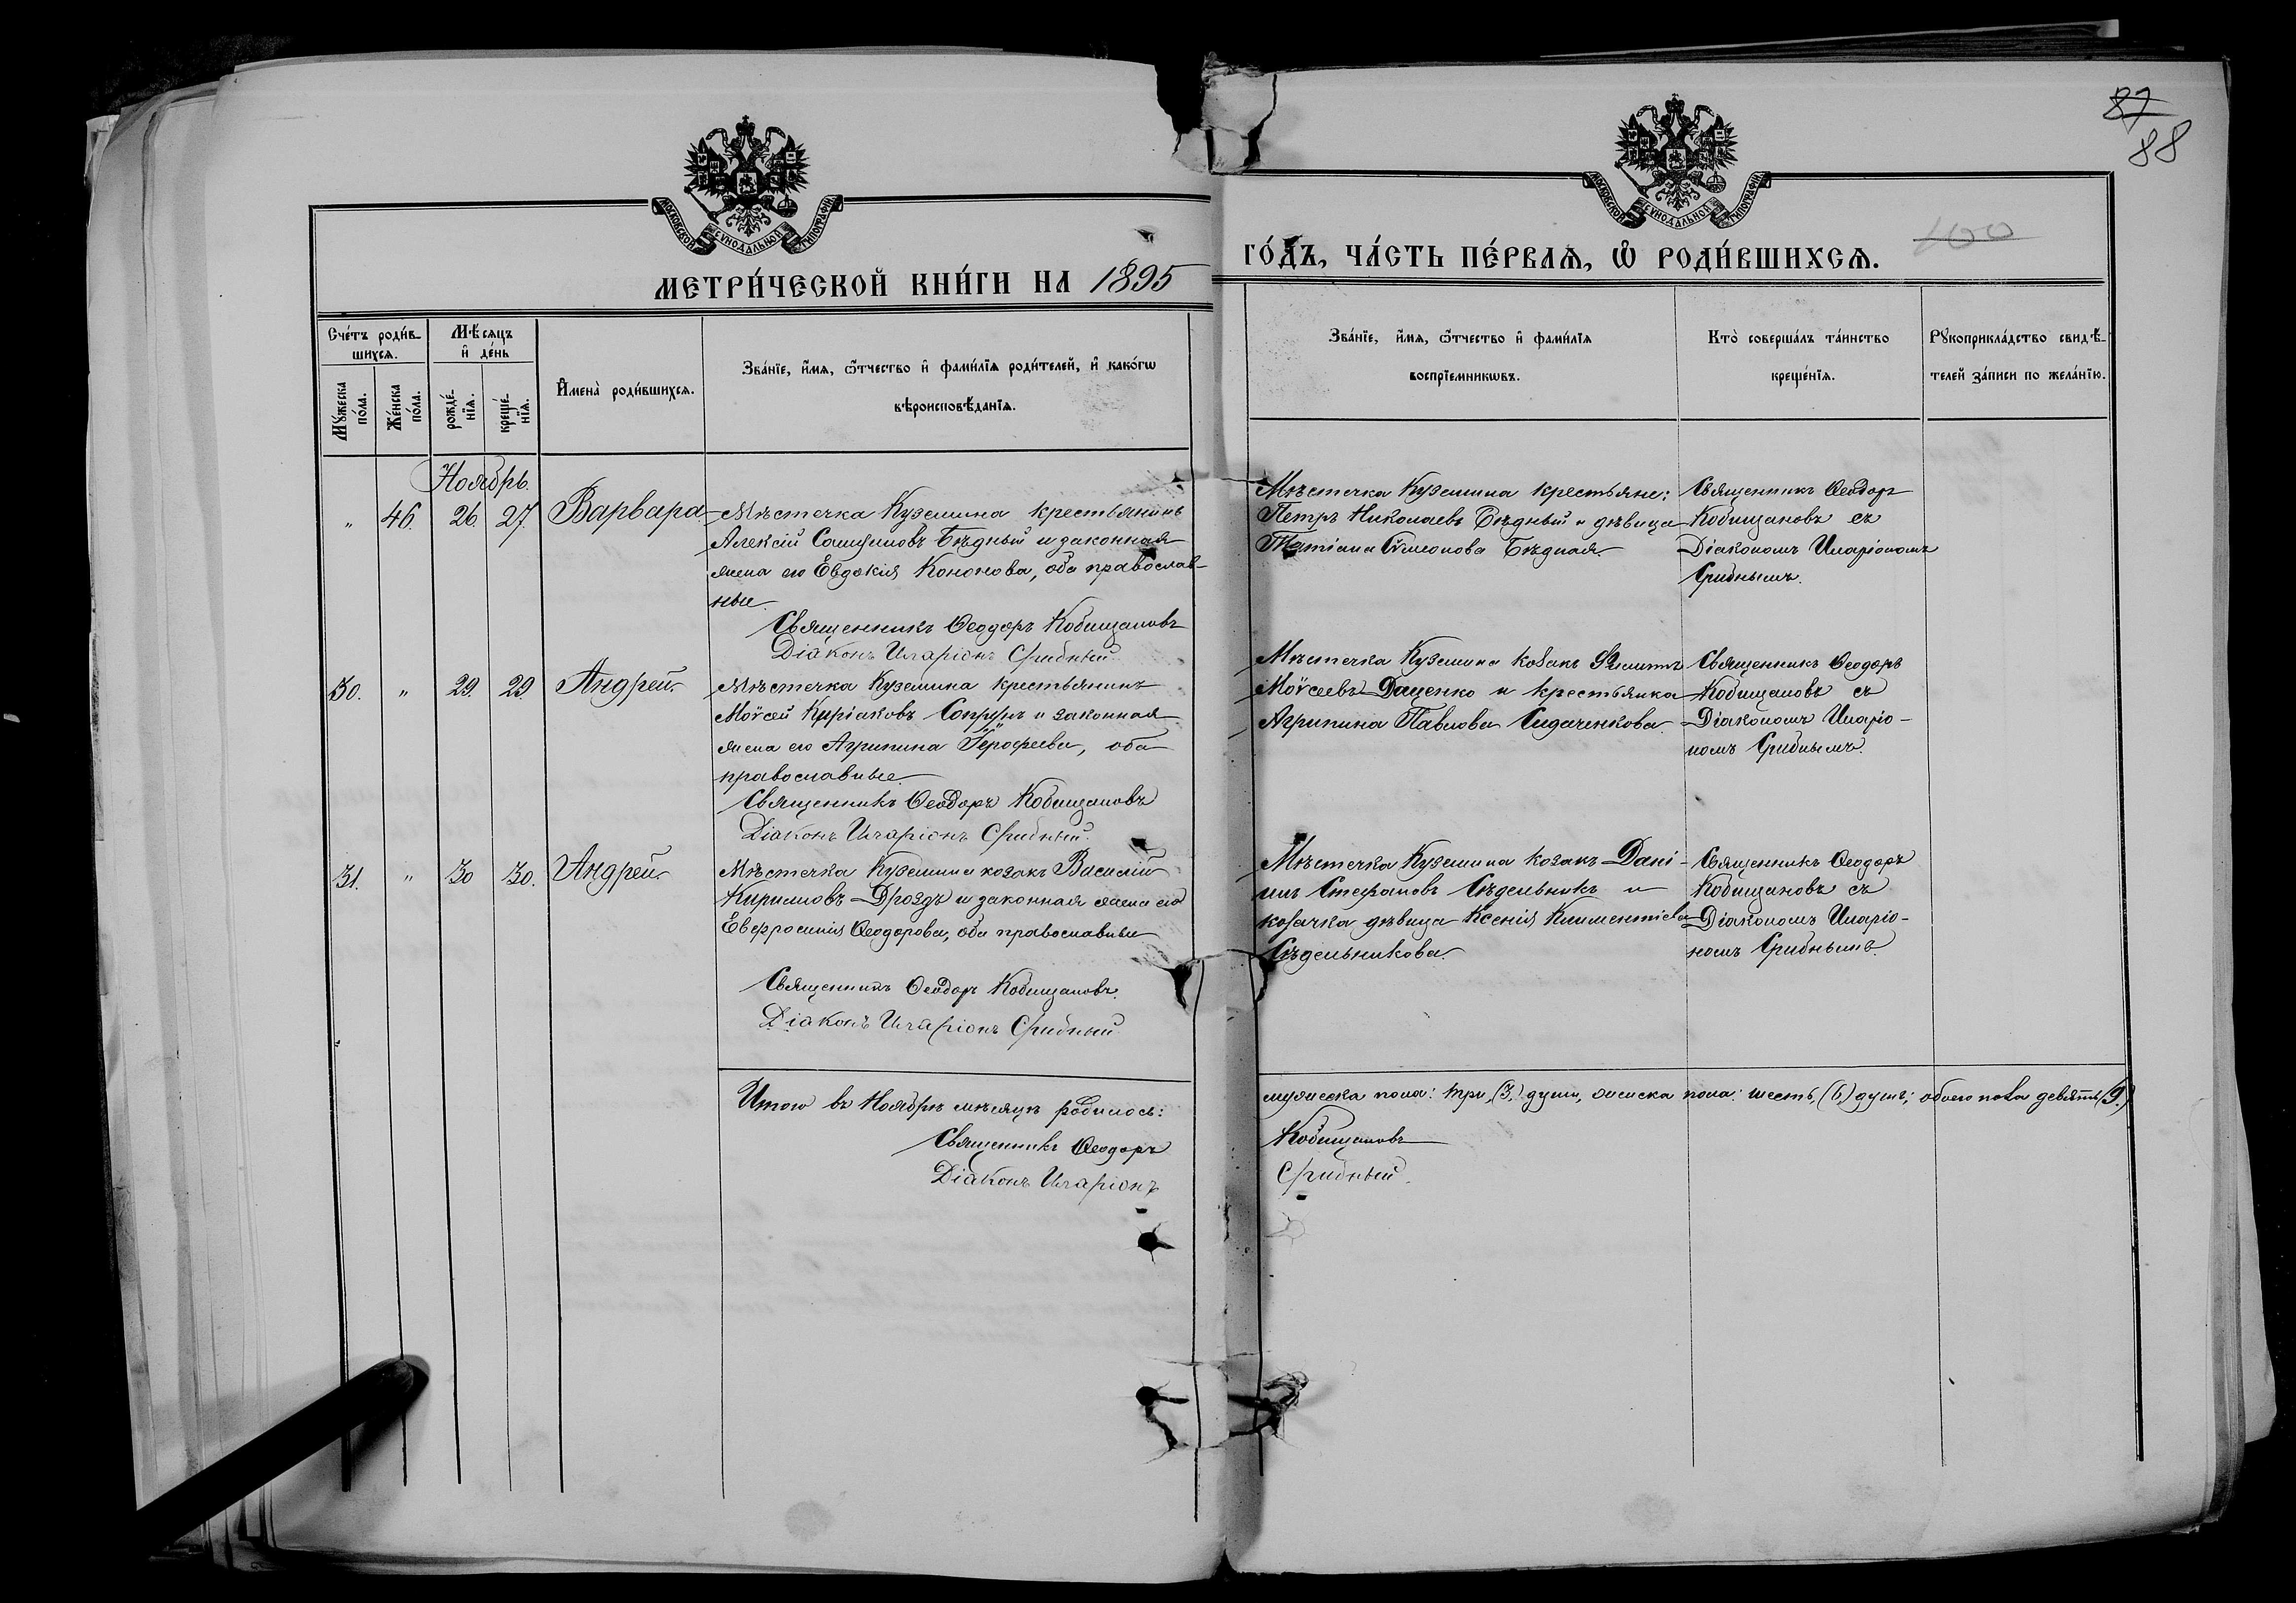 87
88
100
МОСКОВСКОЙ СУНОДАЛЬНОЙ ТИПОГРАФІИ
МОСКОВСКОЙ СУНОДАЛЬНОЙ ТИПОГРАФІИ
МЕТРИ́ЧЕСКОЙ КНИ́ГИ НА 1895
ГО́ДЪ, ЧА́СТЬ ПЕ́РВАѦ, Ѡ҆ РОДИ́ВШИХСѦ.
Сче́тъ роди́в-
шихсѧ.
Мꙋ́жеска
по́ла.
Же́нска
по́ла.
Мѣ́сѧцъ
и҆ де́нь
рожде́-
нїѧ.
креще́-
нїѧ.
И҆мена̀ роди́вшихсѧ.
Зва́нїе, и҆́мѧ, ѻ҆́тчество и҆ фами́лїѧ роди́телей, и҆ како́гѡ
вѣроисповѣ́данїѧ.
Зва́нїе, и҆́мѧ, ѻ҆́тчество и҆ фами́лїѧ
воспрїемникѡвъ.
Кто̀ соверша́лъ та́инство
креще́нїѧ.
Рꙋкоприкла́дство свидѣ́-
телей за́писи по жела́нїю.
Ноябрь.
" 46. 26. 27. Варвара
Мѣстечка Куземина крестьянинъ
Алексій Бѣдный и законная
жена его Евдокія Кононова, оба православ-
ные.
Священникъ Ѳеодоръ Кобищановъ
Діаконъ Иларіонъ Срибный.
Мѣстечка Куземина крестьяне:
Петръ Николаевъ Бѣдный и дѣвица
Татіана Сѵмеонова Бѣдная.
Священникъ Ѳеодоръ
Кобищановъ съ
Діакономъ Иларіономъ
Срибнымъ.
30. " 29. 29. Андрей.
Мѣстечка Куземина крестьянинъ
Моѵсей Киріаковъ и законная
жена его Агрипина Іерофеева, оба
православные.
Священникъ Ѳеодоръ Кобищановъ
Діаконъ Иларіонъ Срибный.
Мѣстечка Куземина козакъ Филиппъ
Моѵсеевъ Даценко и крестьянка
Агрипина Павлова Сидаченкова.
Священникъ Ѳеодоръ
Кобищановъ съ
Діакономъ Иларіо-
номъ Срибнымъ.
31. " 30 30. Андрей.
Мѣстечка Куземина козакъ Василій
Кирилловъ Дроздъ и законная жена его
Евфросинія Ѳеодорова, оба православные
Священникъ Ѳеодоръ Кобищановъ.
Діаконъ Иларіонъ Срибный.
Мѣстечка Куземина козакъ Дані-
илъ Стефановъ Сѣдельникъ и
козачка дѣвица Ксенія Климентіева
Сѣдельникова.
Священникъ Ѳеодоръ
Кобищановъ съ
Діакономъ Иларіо-
номъ Срибнымъ.
Итого въ Ноябрѣ мѣсяцѣ родилось:
мужеска пола: три, (3,) души, женска пола: шесть, (6,) душъ; обоего пола девять (9.)
Священникъ Ѳеодоръ Кобищановъ
Діаконъ Иларіонъ Срибный.